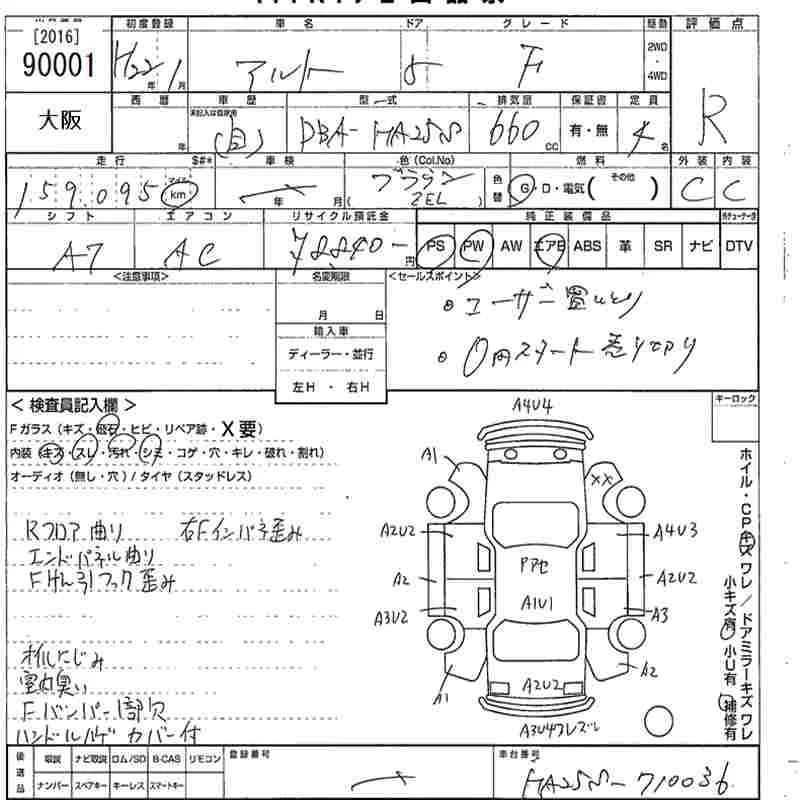 [2016]
90001
大阪
初度登録 車名 ドア グレード 駆動 評価点
H22年 1月 アルト 5 F 2WD・4WD R
西暦 車歴 型式 排気量 保証書 定員
年 未記入は自家用 (自) DBA-HA25S 660cc 有・無 4名
走行 $#* 車検 色(Col.No) 燃料 外装 内装
159,095 マイル km 年 月 ブラウン (ZEL) 色替 G・D・電気( その他 ) C C
シフト エアコン リサイクル預託金 純正装備品
AT AC 円 PS PW AW エアB ABS 革 SR ナビ DTV
<注意事項> 名変期限 <セールスポイント>
月 日
・ユーザー買いとり
輸入車
ディーラー・並行
・0円スタート売り切り
左H・右H
キーロック
<検査員記入欄>
Fガラス(キズ・飛石・ヒビ・リペア跡・X要)
内装(キズ・スレ・汚れ・シミ・コゲ・穴・キレ・破れ・割れ)
オーディオ(無し・穴)/タイヤ(スタッドレス)
Rフロア曲り 右Fインパネ歪み
エンドパネル曲り
Fけん引フック歪み
オイルにじみ
室内臭い
Fバンパー1部欠
ハンドルハゲ カバー付
A4U4
A1
XX
A2U2
A4U3
Pアセ
A2
A2U2
A1U1
A3U2
A3
A1
A2
A2U2
A3U4ワレズレ
ホイル・CPキズワレ/ドアミラーキズワレ
小キズ有 小U有 補修有
後送品 取説 ナビ取説 ロム/SD B-CAS リモコン 登録番号 車台番号
ナンバー スペアキー キーレス スマートキー HA25S-710036